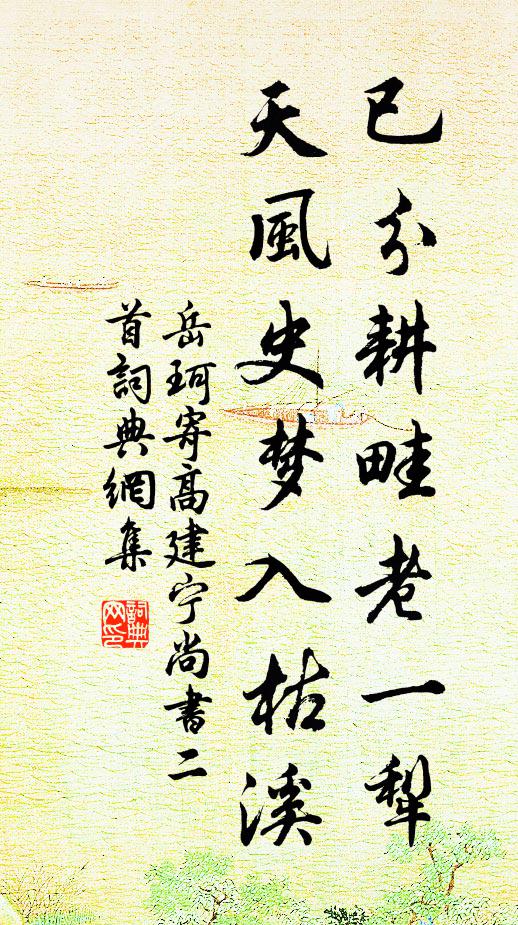 已分耕畦老一犁
天風史梦入枯溪
岳珂寄高建宁尚書二
首詞典網集
詞典
网印